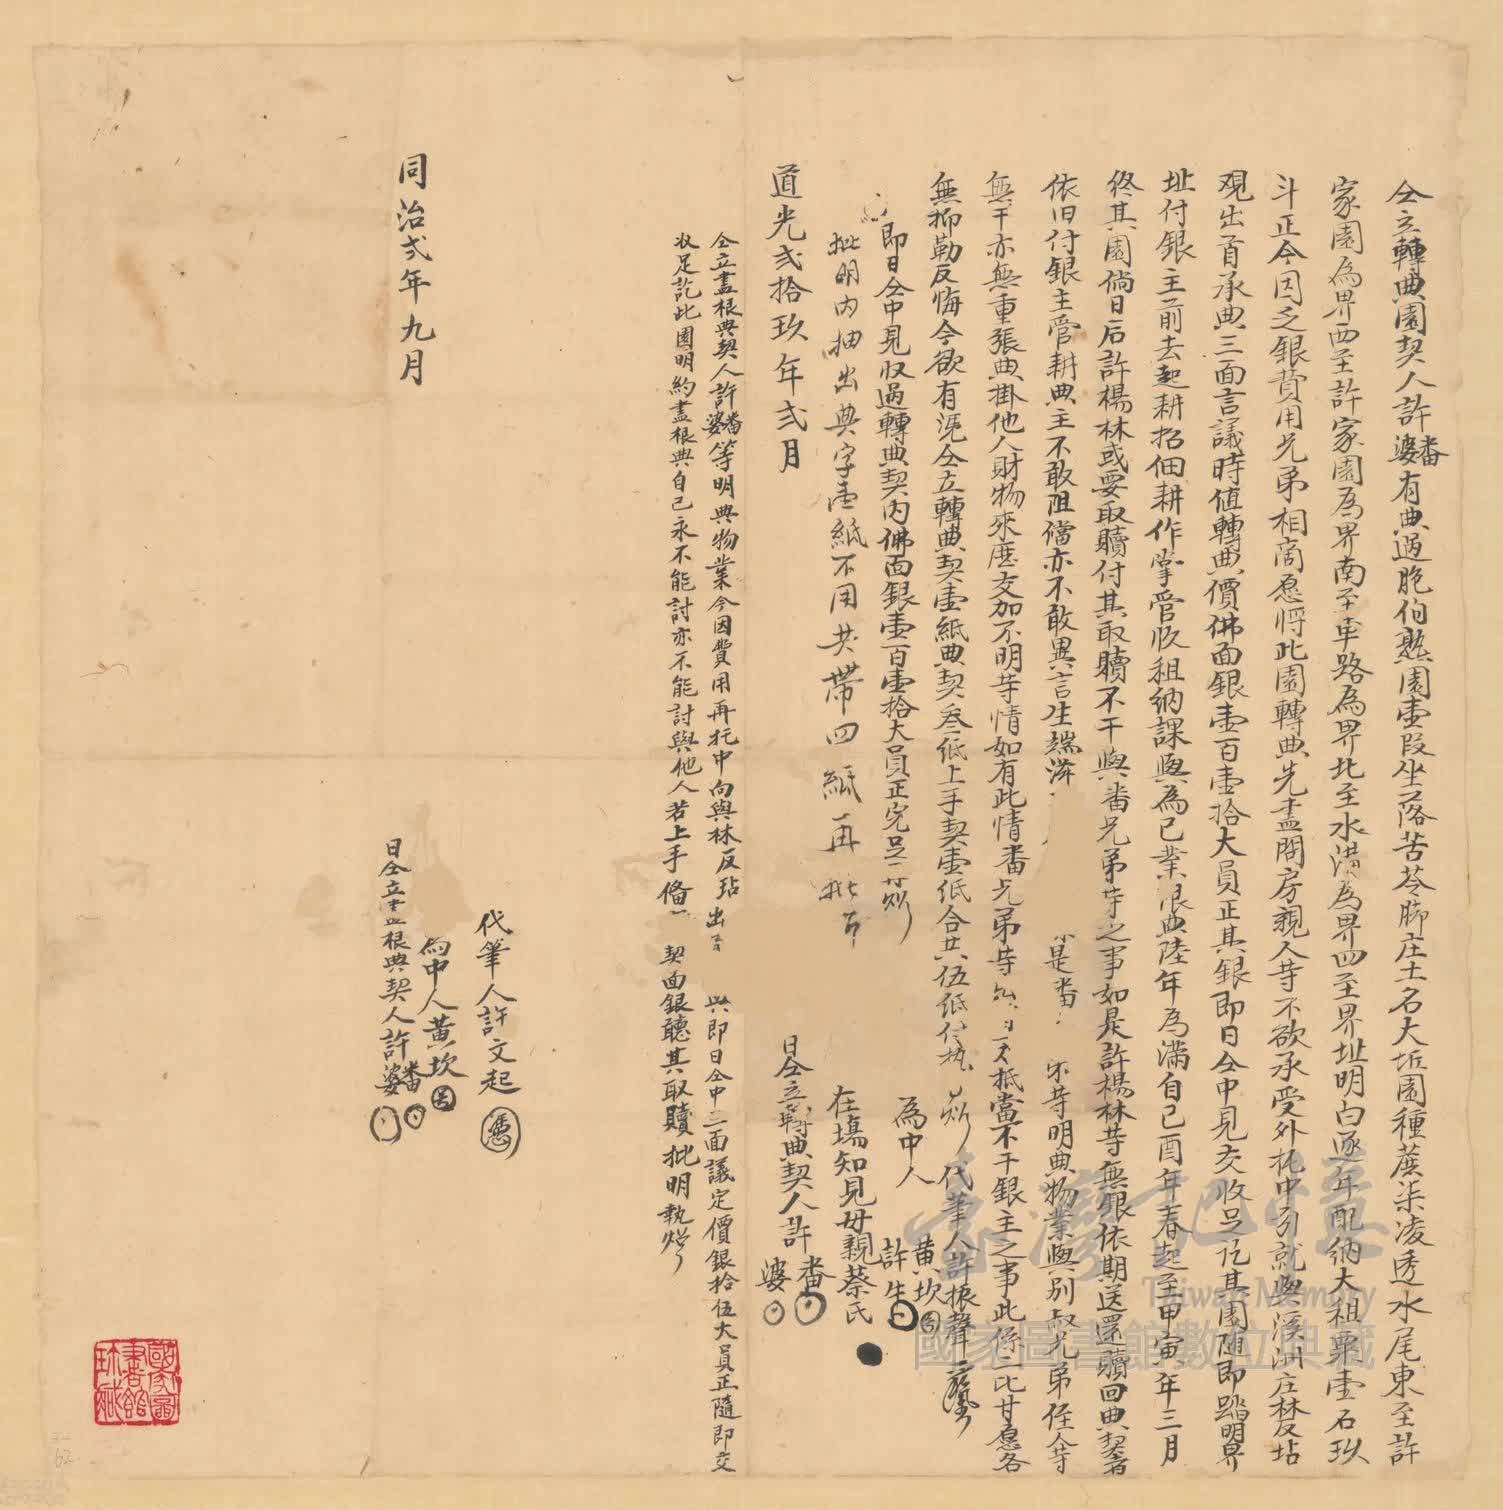 仝立轉典園契人許番婆有典過胞伯熬園壹段坐落苦苓脚庄土名大坵園種蔗柒凌透水尾東至許
家園為界西至許家園為界南至車路為界北至水溝為界四至界址明白逐年配納大租粟壹石玖
斗正今因乏銀費用兄弟相商愿將此園轉典先盡問房親人等不欲承受外托中引就與溪洲庄林反坫
观出首承典三面言議時值轉典價佛面銀壹百壹拾大員正其銀即日仝中見交收足訖其園随即踏明界
址付銀主前去起耕招佃耕作掌管收租納課與為己業限典陸年為滿自己酉年春起至甲寅年三月
終其園倘日后許楊林或要取贖付其取贖不干與番兄弟等之事如是許楊林等無銀依期送還贖回典契者
依旧付銀主管耕典主不敢阻擋亦不敢異言生端滋 是番 不等明典物業與別叔兄弟侄人等
無干亦無重張典掛他人財物來歷交加不明等情如有此情番兄弟等 抵當不干銀主之事此係二比甘愿各
無抑勒反悔今欲有憑仝立轉典契壹紙典契叁紙上手契壹紙合共伍紙付执 炤
即日仝中見收過轉典契内佛面銀壹百壹拾大員正完足再炤
批明内抽出典字壹紙不用共帶四紙再批炤
代筆人許振聲
為中人 黄坎 許生
在塲知見母親蔡氏
道光弍拾玖年弍月 日仝立轉典契人許番婆
仝立盡根典契人許番婆等明典物業今因費用再托中向與林反玷出 與即日仝中三面議定價銀拾伍大員正隨即交
收足訖此園明約盡根典自己永不能討亦不能討與他人若上手俻 契面銀聽其取贖批明執炤
代筆人許文起
為中人黄坎
同治弍年九月 日仝立盡根典契人許番婆
國家圖書館珎藏
臺灣記憶
Taiwan Memory
國家圖書館數位典藏